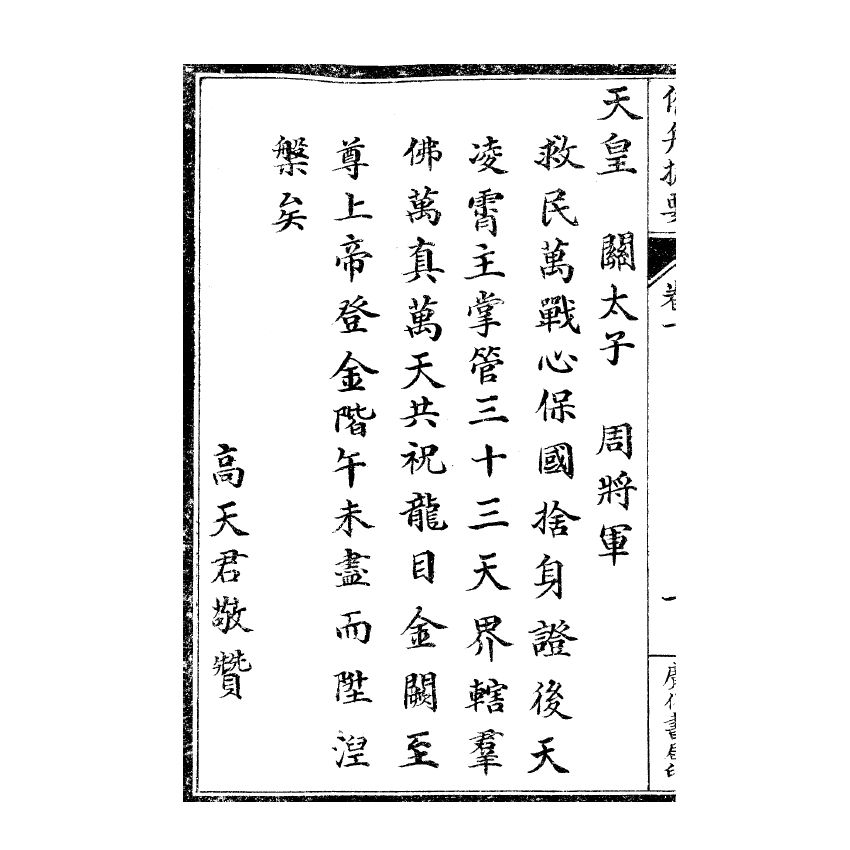 卷一
一
天皇　關太子　周將軍
救民萬戰心保國捨身證後天
凌霄主掌管三十三天界轄羣
佛萬真萬天共祝龍目金闕至
尊上帝登金階午未盡而陞湼
槃矣
高天君敬贊